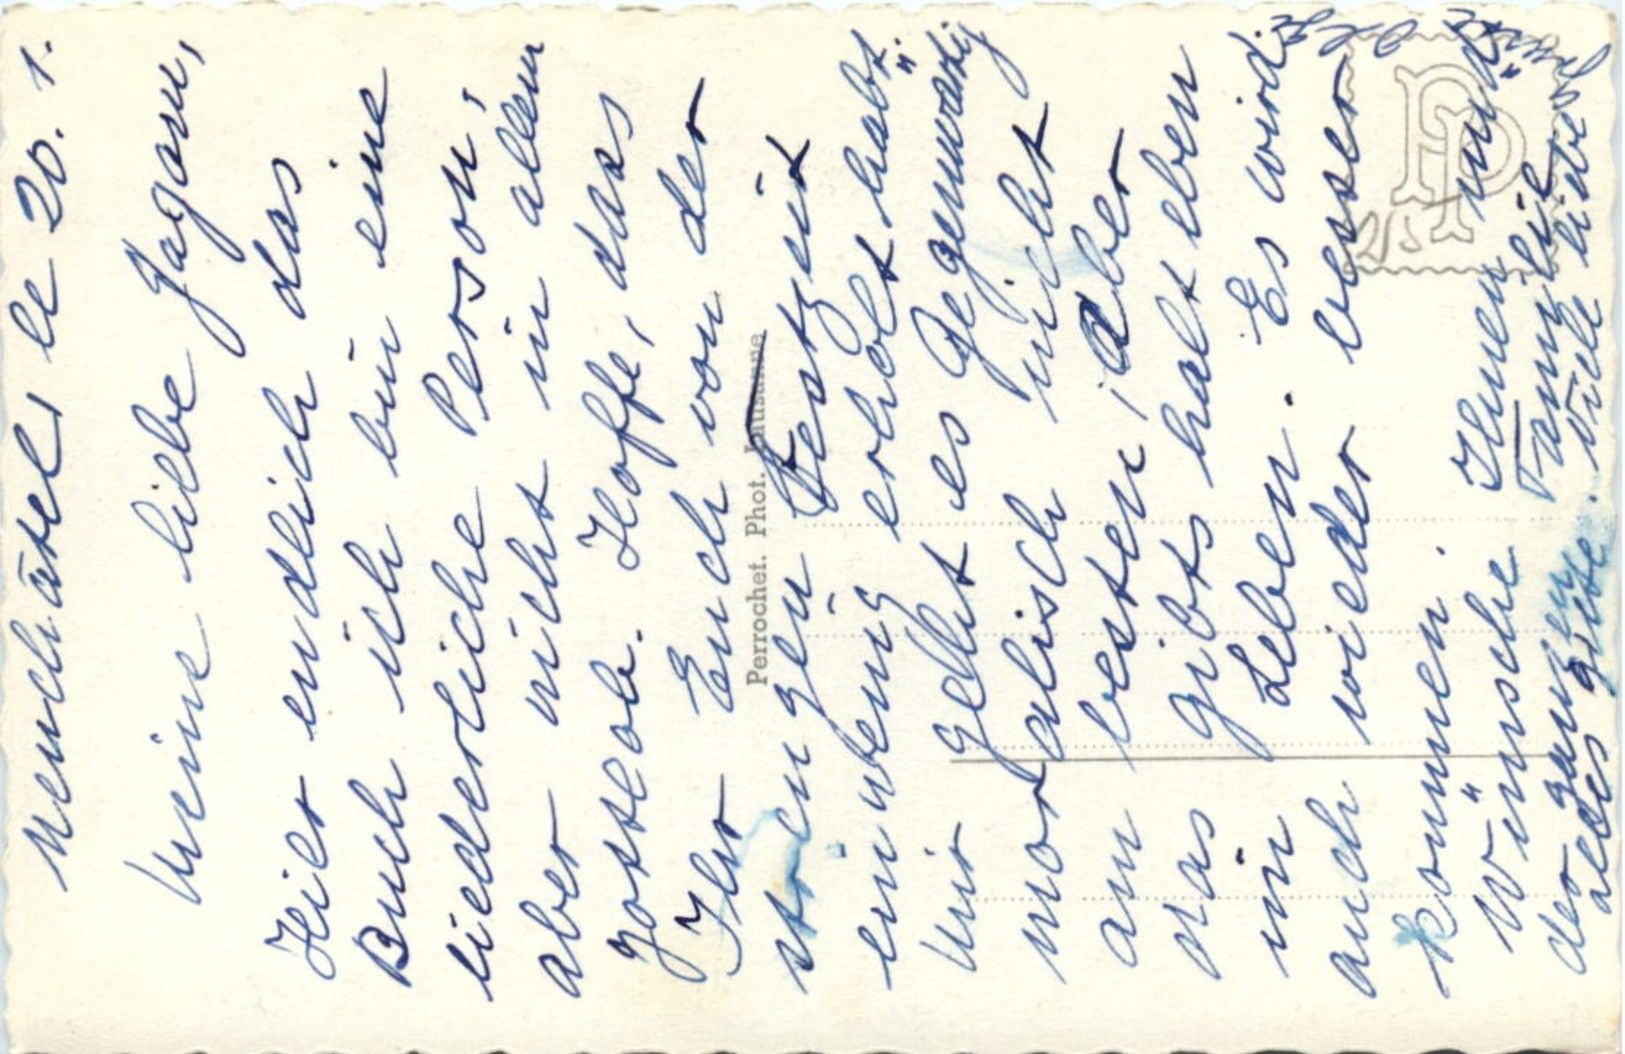 Neuchâtel le 20. 1.
Meine liebe Jagon,
Hier endlich das
Buch ich bin eine
liederliche Person,
aber nicht in allem
gottlob. Hoffe, das
Ihr Euch von der
strengen Festzeit
ein wenig erholt habt.
Mir geht es gegenwärtig
moralisch nicht
am besten, aber
das gibts halt eben
im Leben. Es wird
auch wieder besser
kommen.
Wünsche Ihnen und
der ganzen Familie
alles gute. Viele liebe
Perrochet. Phot. Lausanne
2/5